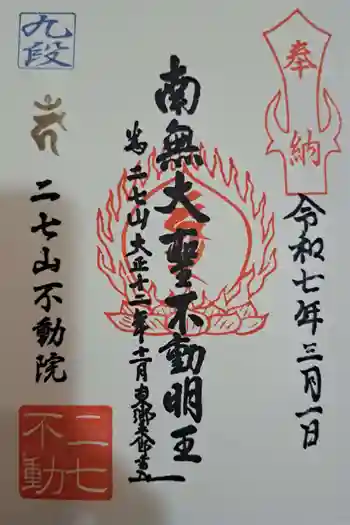 奉納
令和七年三月一日
南無大聖不動明王
二七山大正十二年十二月
九段
二七山不動院
二七
不動